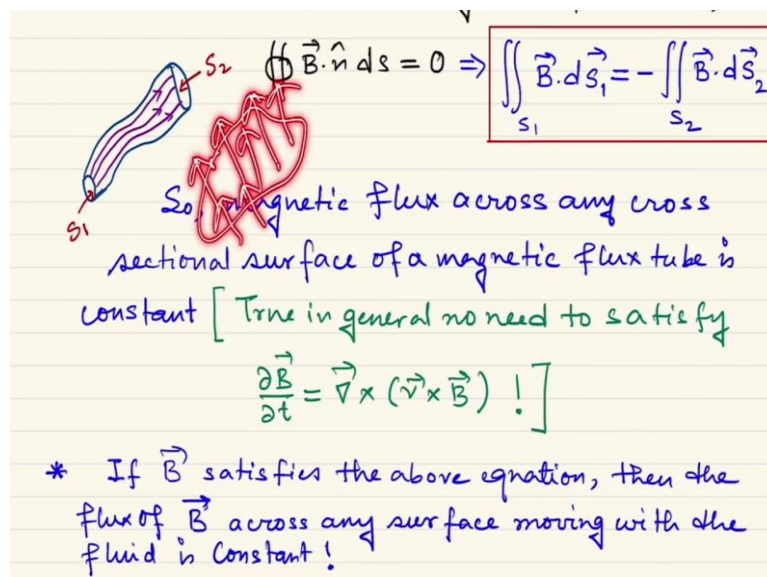 S₂ ∯ B⃗·n̂ ds = 0 ⇒ ∬_{S₁} B⃗·dS⃗₁ = - ∬_{S₂} B⃗·dS⃗₂
S₁
So, magnetic flux across any cross
sectional surface of a magnetic flux tube is
constant [True in general no need to satisfy
∂B⃗/∂t = ∇⃗ × (v⃗ × B⃗) !]
* If B⃗ satisfies the above equation, then the
flux of B⃗ across any surface moving with the
fluid is constant!